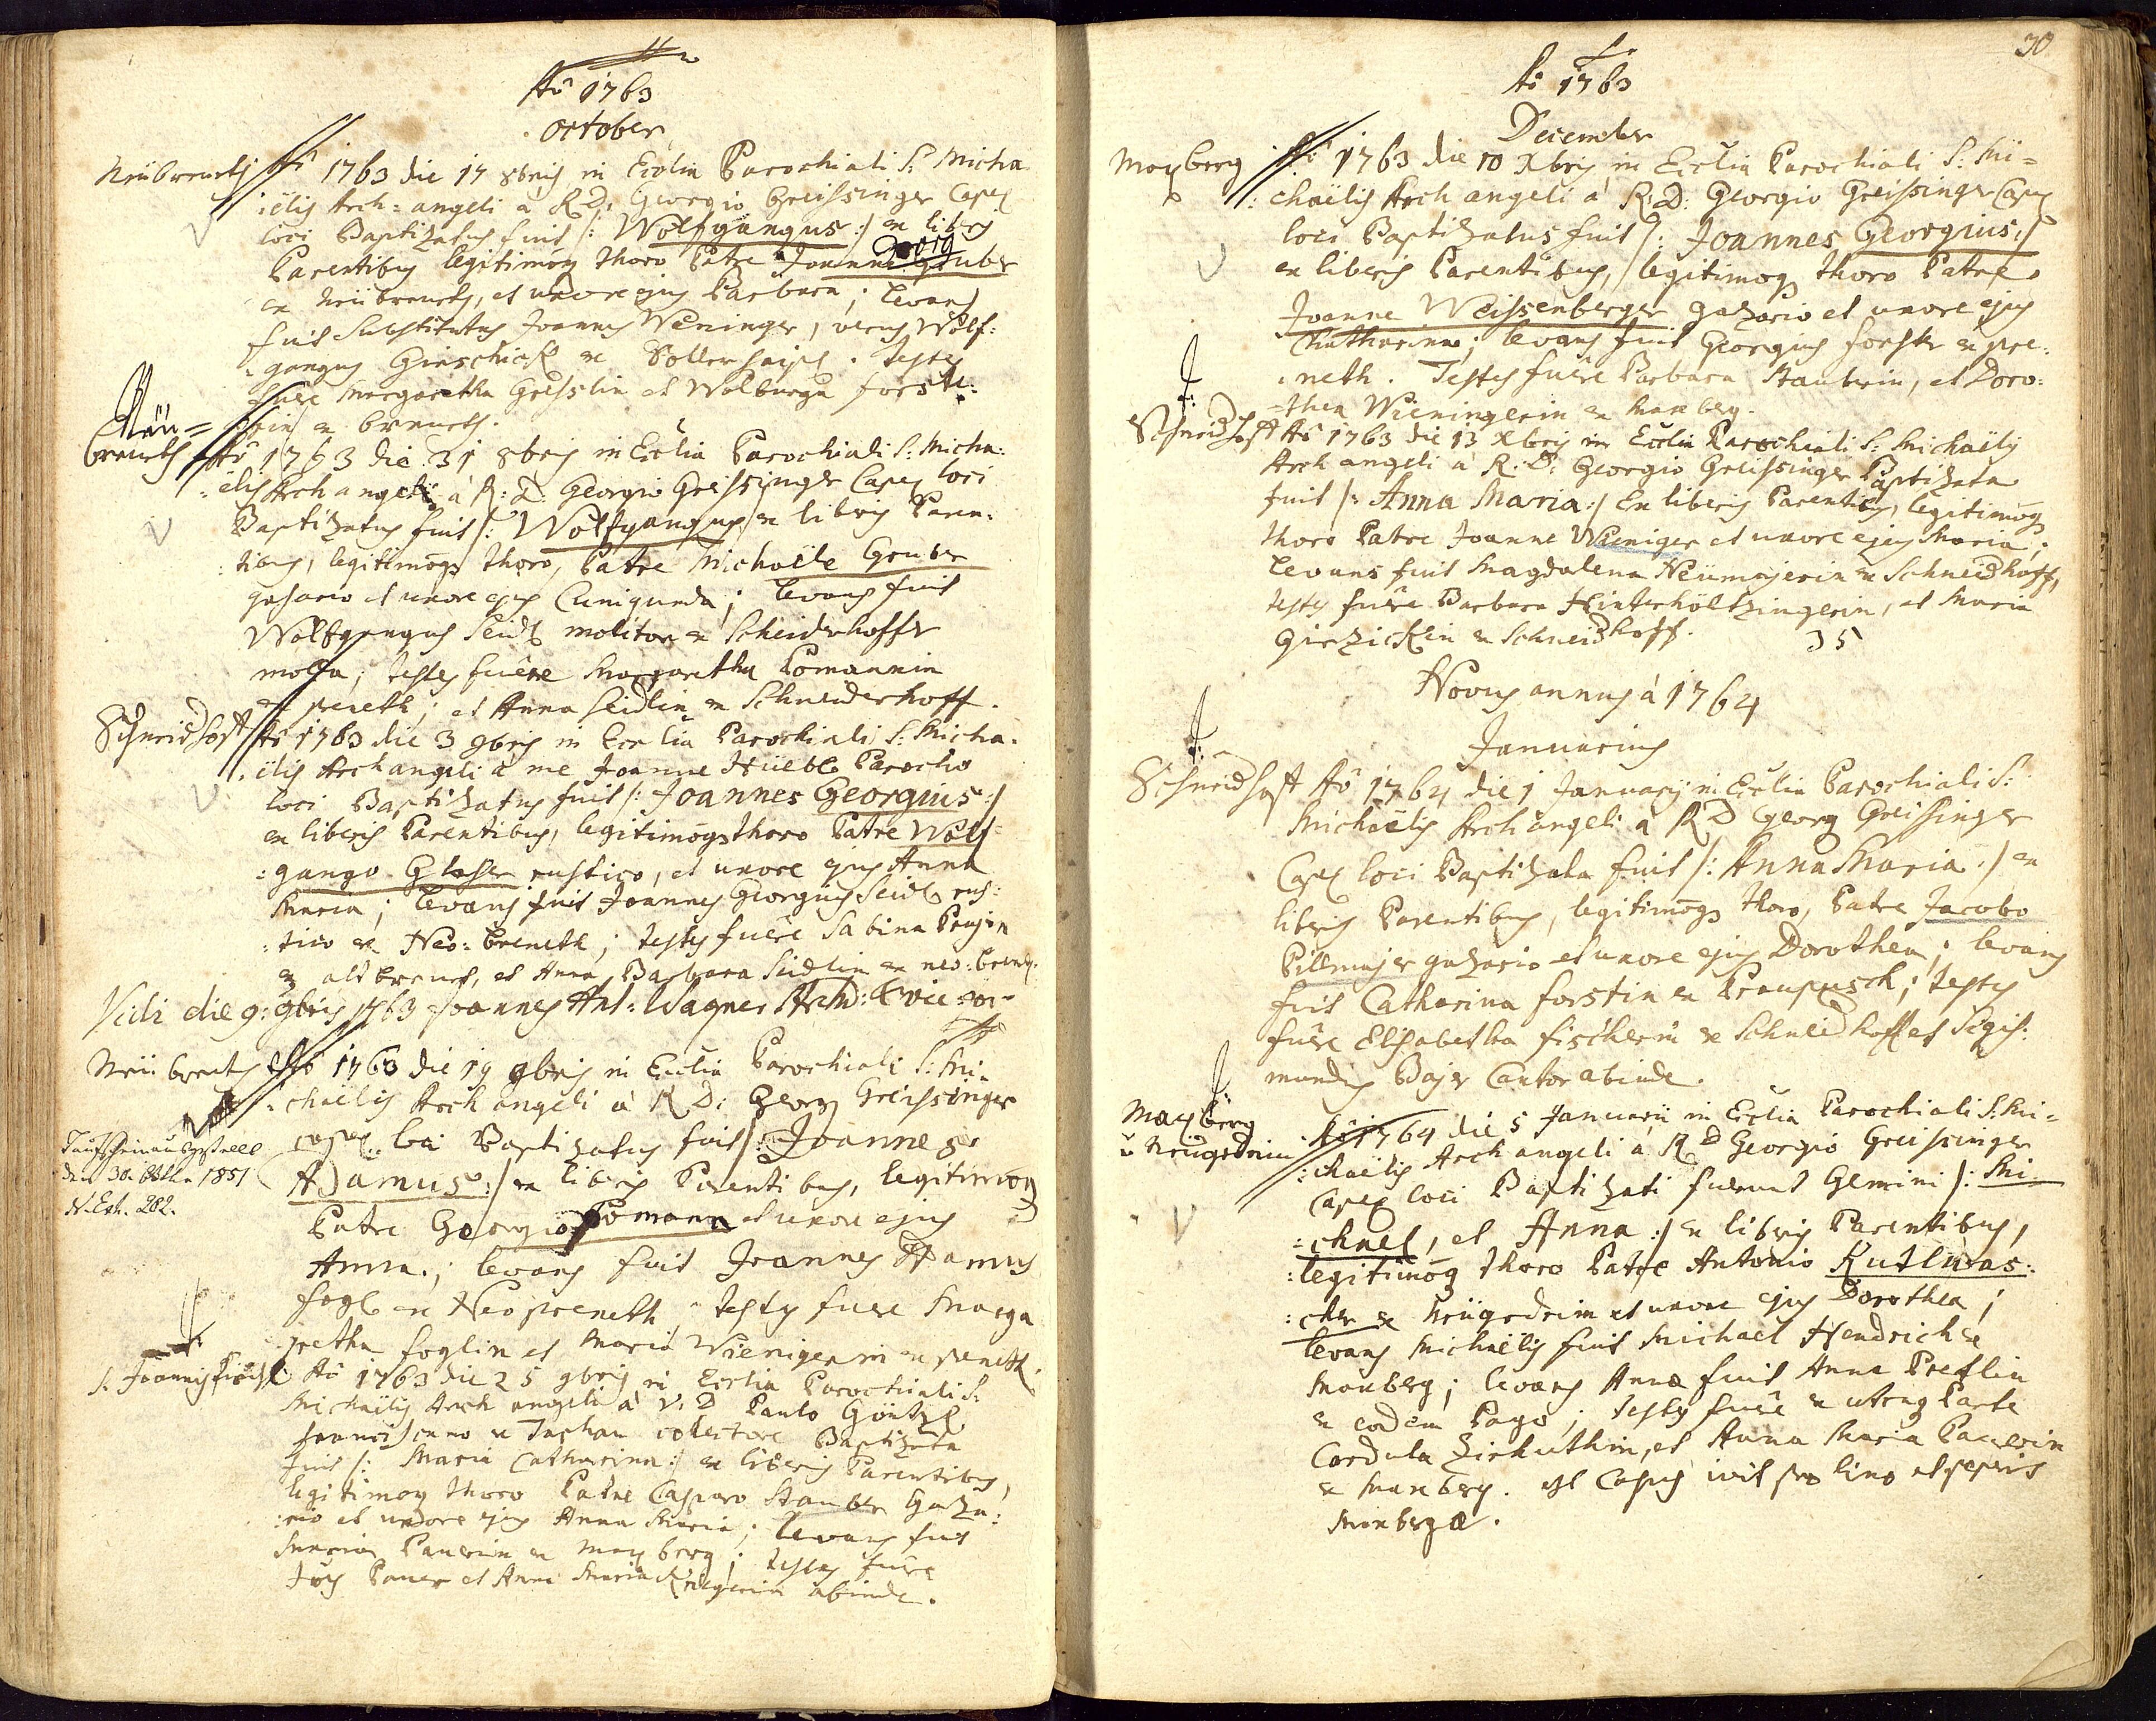 Aô 1763
October
Neübreneth Aô 1763 die 17 8bris in Ecclia Parochiali S: Micha
:ëlis Arch=angeli à R.D: Georgio Greissinger Capel
loci Baptizatus fuit /: Wolfgangus :/ ex liberis
Parentibus legitimoqs thoro Patre Joanne Georg Gruber
ex Neübreneth, et uxore ejus Barbara; levans
fuit substitutus Joannes Weninger, verus Wolf:
gangus ex Testes
fuere Margaretha et Walburga
Neü=
breneth
Aô 1763 die 31 8bris in Ecclia Parochiali S: Micha:
:ëlis Archangeli à R: D: Georgio Greissinger Capel loci
Baptizatus fuit /: Wolfgangus ex liberis Paren:
:tibus, legitimoqs thoro, Patre Michaele Gruber
gazario et uxore ejus Cunigunda; levans fuit
Wolfgangus Seidl molitor ex Scheiderhoffer
mola; testes fuêre Margaretha Pomannin
ex preneth; et Anna Seidlin ex Schneiderhoff.
Schneidhoff Aô 1763 die 3 9bris in Ecclia Parochiali S: Micha.
:ëlis Archangeli à me Joanne Hüebl Parocho
loci Baptizatus fuit /: Joannes Georgius :/
ex liberis Parentibus, legitimoqs thoro Patre Wolf=
:gango Glaser rustico, et uxore ejus Anna
Maria; levans fuit Joannes Georgius Seidl rus:
:tico ex Neo: breneth; testes fuêre Sabina
ex altbreneth, et Anna Barbara Seidlin ex neo: breneth.
Vidi die 9: 9bris 1763 Joannes Ant: Wagner
Neübreneth Aô 1763 die 19 9bris in Ecclia Parochiali S: Mi=
:chaëlis Archangeli à R D: Georg Greissinger
capel: loci Baptizatus fuit /: Joannes
Adamus :/ ex liberis Parentibus, legitimoqs
Taufschein ausgestellt
den 30. 1851
N. Exh. 282.
Patre Georgio Pomann et uxore ejus
Anna; levans fuit Joannes Adamus
fogl ex Neopreneth, testes fuere Marga
:retha foglin et Maria Wieningerin ex preneth.
S. Joannis Aô 1763 die 25 9bris in Ecclia Parochiali S:
Michaëlis Archangeli à V. D Paulo Göntzl
franciscano ex Tachau colectore Baptizata
fuit /: Maria Catharina :/ ex liberis Parentibus,
legitimoqs thoro Patre Casparo Stauber Gaza:
:rio et uxore ejus Anna Maria; levans fuit
Maria Pauerin ex Maxberg; testes fuêre
Pauer et Anna Maria abinde.
30
Aô 1763
December
Maxberg Aô 1763 die 10 Xbris in Ecclia Parochiali S: Mi=
:chaëlis Archangeli à R: D: Georgio Greissinger Capel
loci Baptizatus fuit /: Joannes Georgius :/
ex liberis Parentibus, legitimoqs thoro Patre
Joanne Weissenberger gazario et uxore ejus
Catharina; levans fuit Georgius forster ex pre:
:neth. Testes fuêre Barbara Stauberin, et Doro:
=thea Wieningerin ex Maxberg.
Schneidhoff Aô 1763 die 13 Xbris in Ecclia Parochiali S: Michaëlis
Archangeli à R. D: Georgio Greissinger Baptizata
fuit /: Anna Maria :/ Ex liberis Parentibus, legitimoqs
thoro Patre Joanne Wieniger et uxore ejus Maria;
levans fuit Magdalena Neümajerin ex Schneidhoff,
testes fuêre Barbara Hinterhöltzingerin, et Maria
Girzicklin ex Schneidhoff. 35
Novus annus à 1764
Januarius
Schneidhoff Aô 1764 die 1 Januarij in Ecclia Parochiali S:
Michaëlis Archangeli à R D Georg Greissinger
Capel loci Baptizata fuit /: Anna Maria :/ ex
liberis Parentibus, legitimoqs thoro, Patre Jacobo
Pillmajer gazario et uxore ejus Dorothea; levans
fuit Catharina forstin ex; testes
fuêre Elisabetha fischerin ex Schneidhoff et Sigis:
mundus Bajer Cantor abinde.
Maxberg
u Neügedrin Aô 1764 die 5 Januarii in Ecclia Parochiali S: Mi=
:chaëlis Archangeli à R D Georgio Greissinger
Capel loci Baptizati fuerunt Gemini /: Mi=
:chael, et Anna :/ ex liberis Parentibus,
:legitimoqs thoro Patre Antonio Kutlwas:
:cher ex Neügedrin et uxore ejus Dorothea;
levans Michaëlis fuit Michael Hendrich ex
Maxberg; levans Annæ fuit Anna Pretlin
ex eodem Pago; Testes fuêre ex utraq Parte
Cordula Zirkuthin, et Anna Maria Pauerin
ex Maxberg. et Capus ivit pro lino et
Maxbergæ.